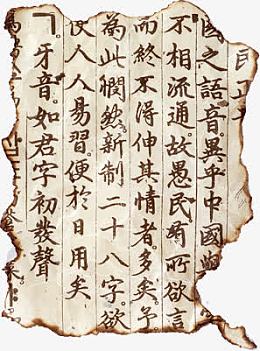 民
國之語音。異乎中國與
不相流通。故愚民有所欲言
而終不得伸其情者。多矣。予
為此憫然。新制二十八字。欲
使人人易習。便於日用矣
ㄱ。牙音。如君字初發聲